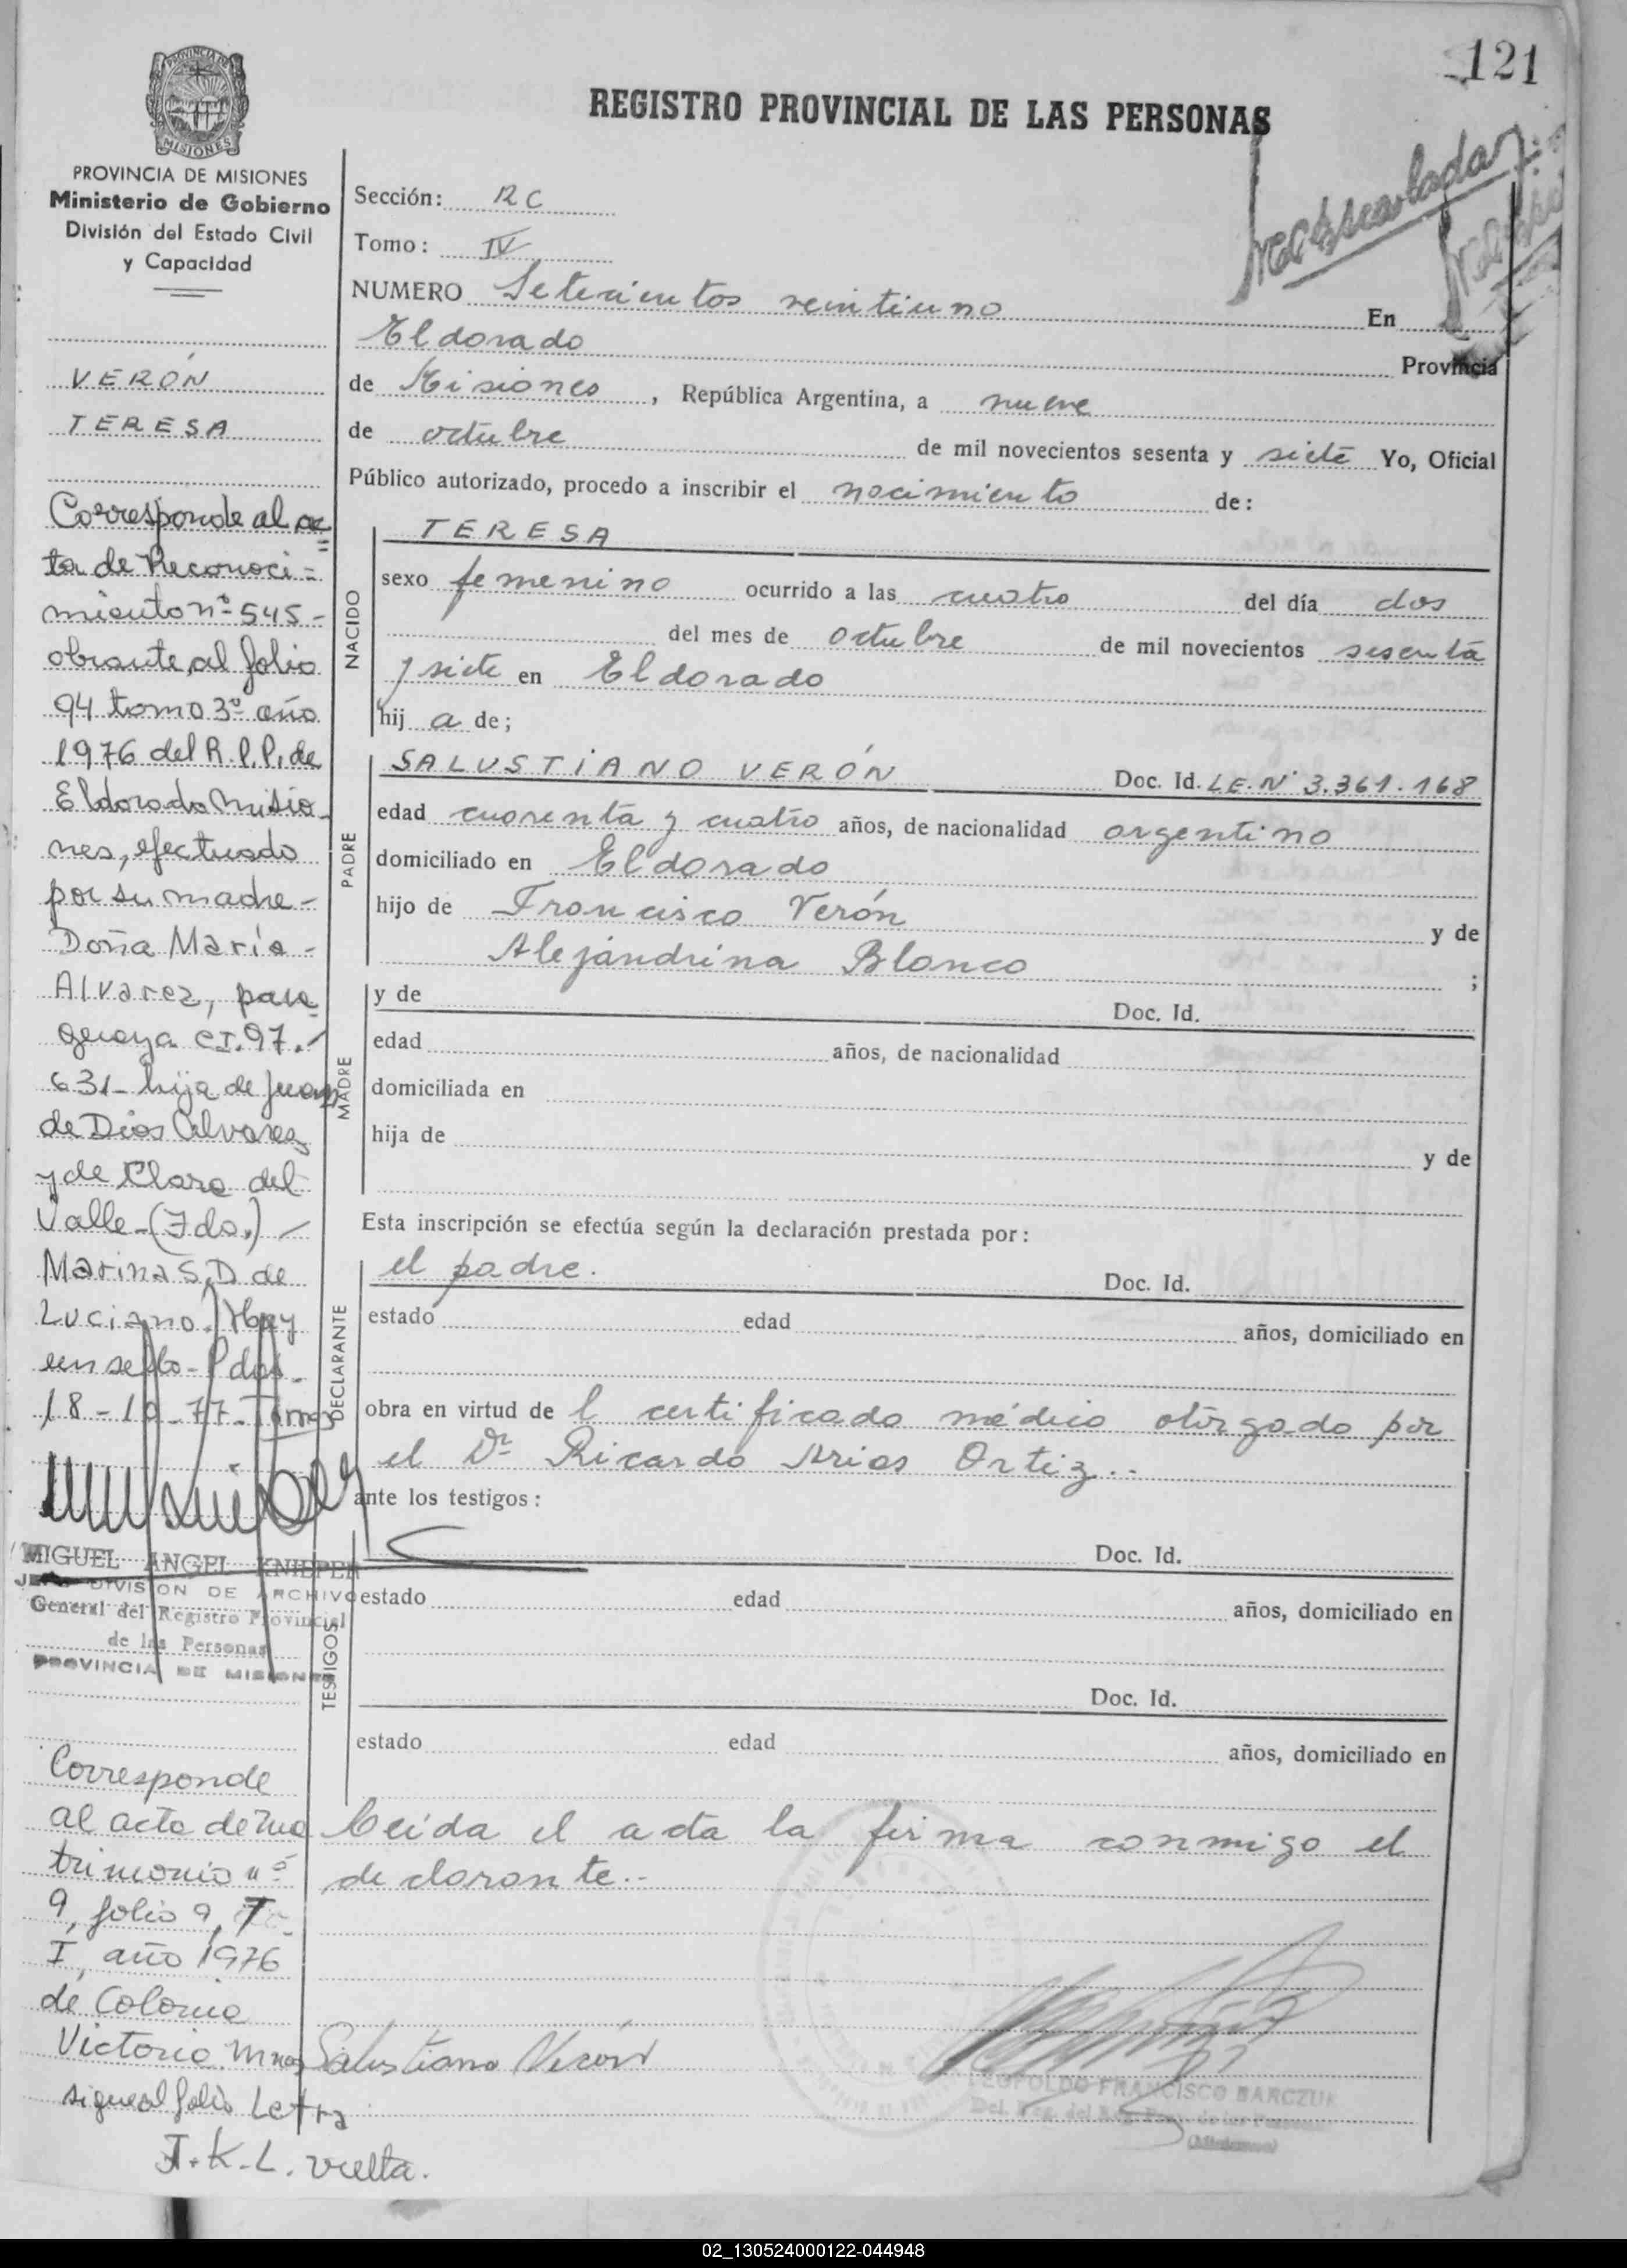 121
REGISTRO PROVINCIAL DE LAS PERSONAS
PROVINCIA DE
MISIONES
PROVINCIA DE MISIONES
Ministerio de Gobierno
División del Estado Civil
y Capacidad
VERÓN
TERESA
Corresponde al ac=
ta de Reconoci=
miento nº 545-
obrante al folio
94 tomo 3º año
1976 del R.P.P. de
Eldorado Misio-
nes, efectuado
por su madre-
Doña María-
Alvarez, para-
guaya CI. 97.-
631- hija de Juan
de Dios Alvarez
y de Clara del
Valle-(Fdo.)-
Marina S.D. de
Luciano. Hay
un sello- Pdas-
18-10-77-
MIGUEL ANGEL KNIEPER
JEFE DIVISION DE ARCHIVO
General del Registro Provincial
de las Personas
PROVINCIA DE MISIONES
Corresponde
al acta de ma
trimonio nº
9, folio 9, Tº
I, año 1976
de Colonia
Victoria Mnes
sigue al folio Letra
J.K.L. vuelta.
Sección: RC
Tomo: IV
NUMERO Setecientos veintiuno En
Eldorado Provincia
de Misiones, República Argentina, a nueve
de octubre de mil novecientos sesenta y siete Yo, Oficial
Público autorizado, procedo a inscribir el nacimiento de:
NACIDO
TERESA
sexo femenino ocurrido a las cuatro del día dos
del mes de octubre de mil novecientos sesenta
y siete en Eldorado
hij a de;
PADRE
SALUSTIANO VERÓN Doc. Id. LE. Nº 3.361.168
edad cuarenta y cuatro años, de nacionalidad argentino
domiciliado en Eldorado
hijo de Francisco Verón y de
Alejandrina Blanco ;
MADRE
y de Doc. Id.
edad años, de nacionalidad
domiciliada en
hija de y de
Esta inscripción se efectúa según la declaración prestada por:
DECLARANTE
el padre. Doc. Id.
estado edad años, domiciliado en
obra en virtud de l certificado médico otorgado por
el Dr Ricardo Arias Ortiz.-
ante los testigos:
TESTIGOS
Doc. Id.
estado edad años, domiciliado en
Doc. Id.
estado edad años, domiciliado en
Leida el acta la firma conmigo el
declarante.-
Salustiano Verón
LEOPOLDO FRANCISCO BARCZUK
02_130524000122-044948